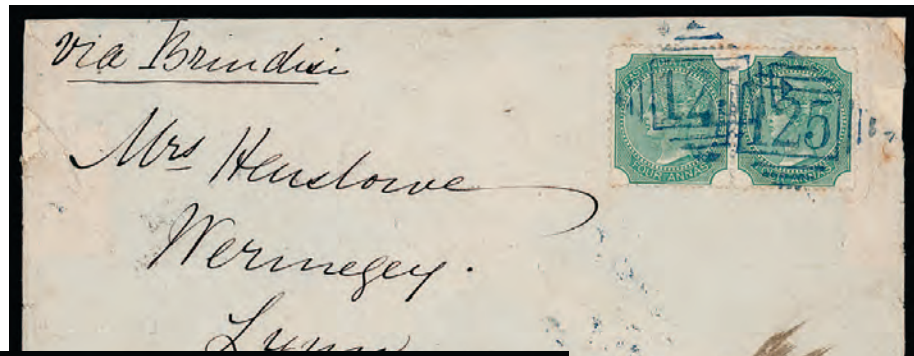 via Brindisi
Mrs Henslowe
Wermegey.
Lynn
FOUR ANNAS
125